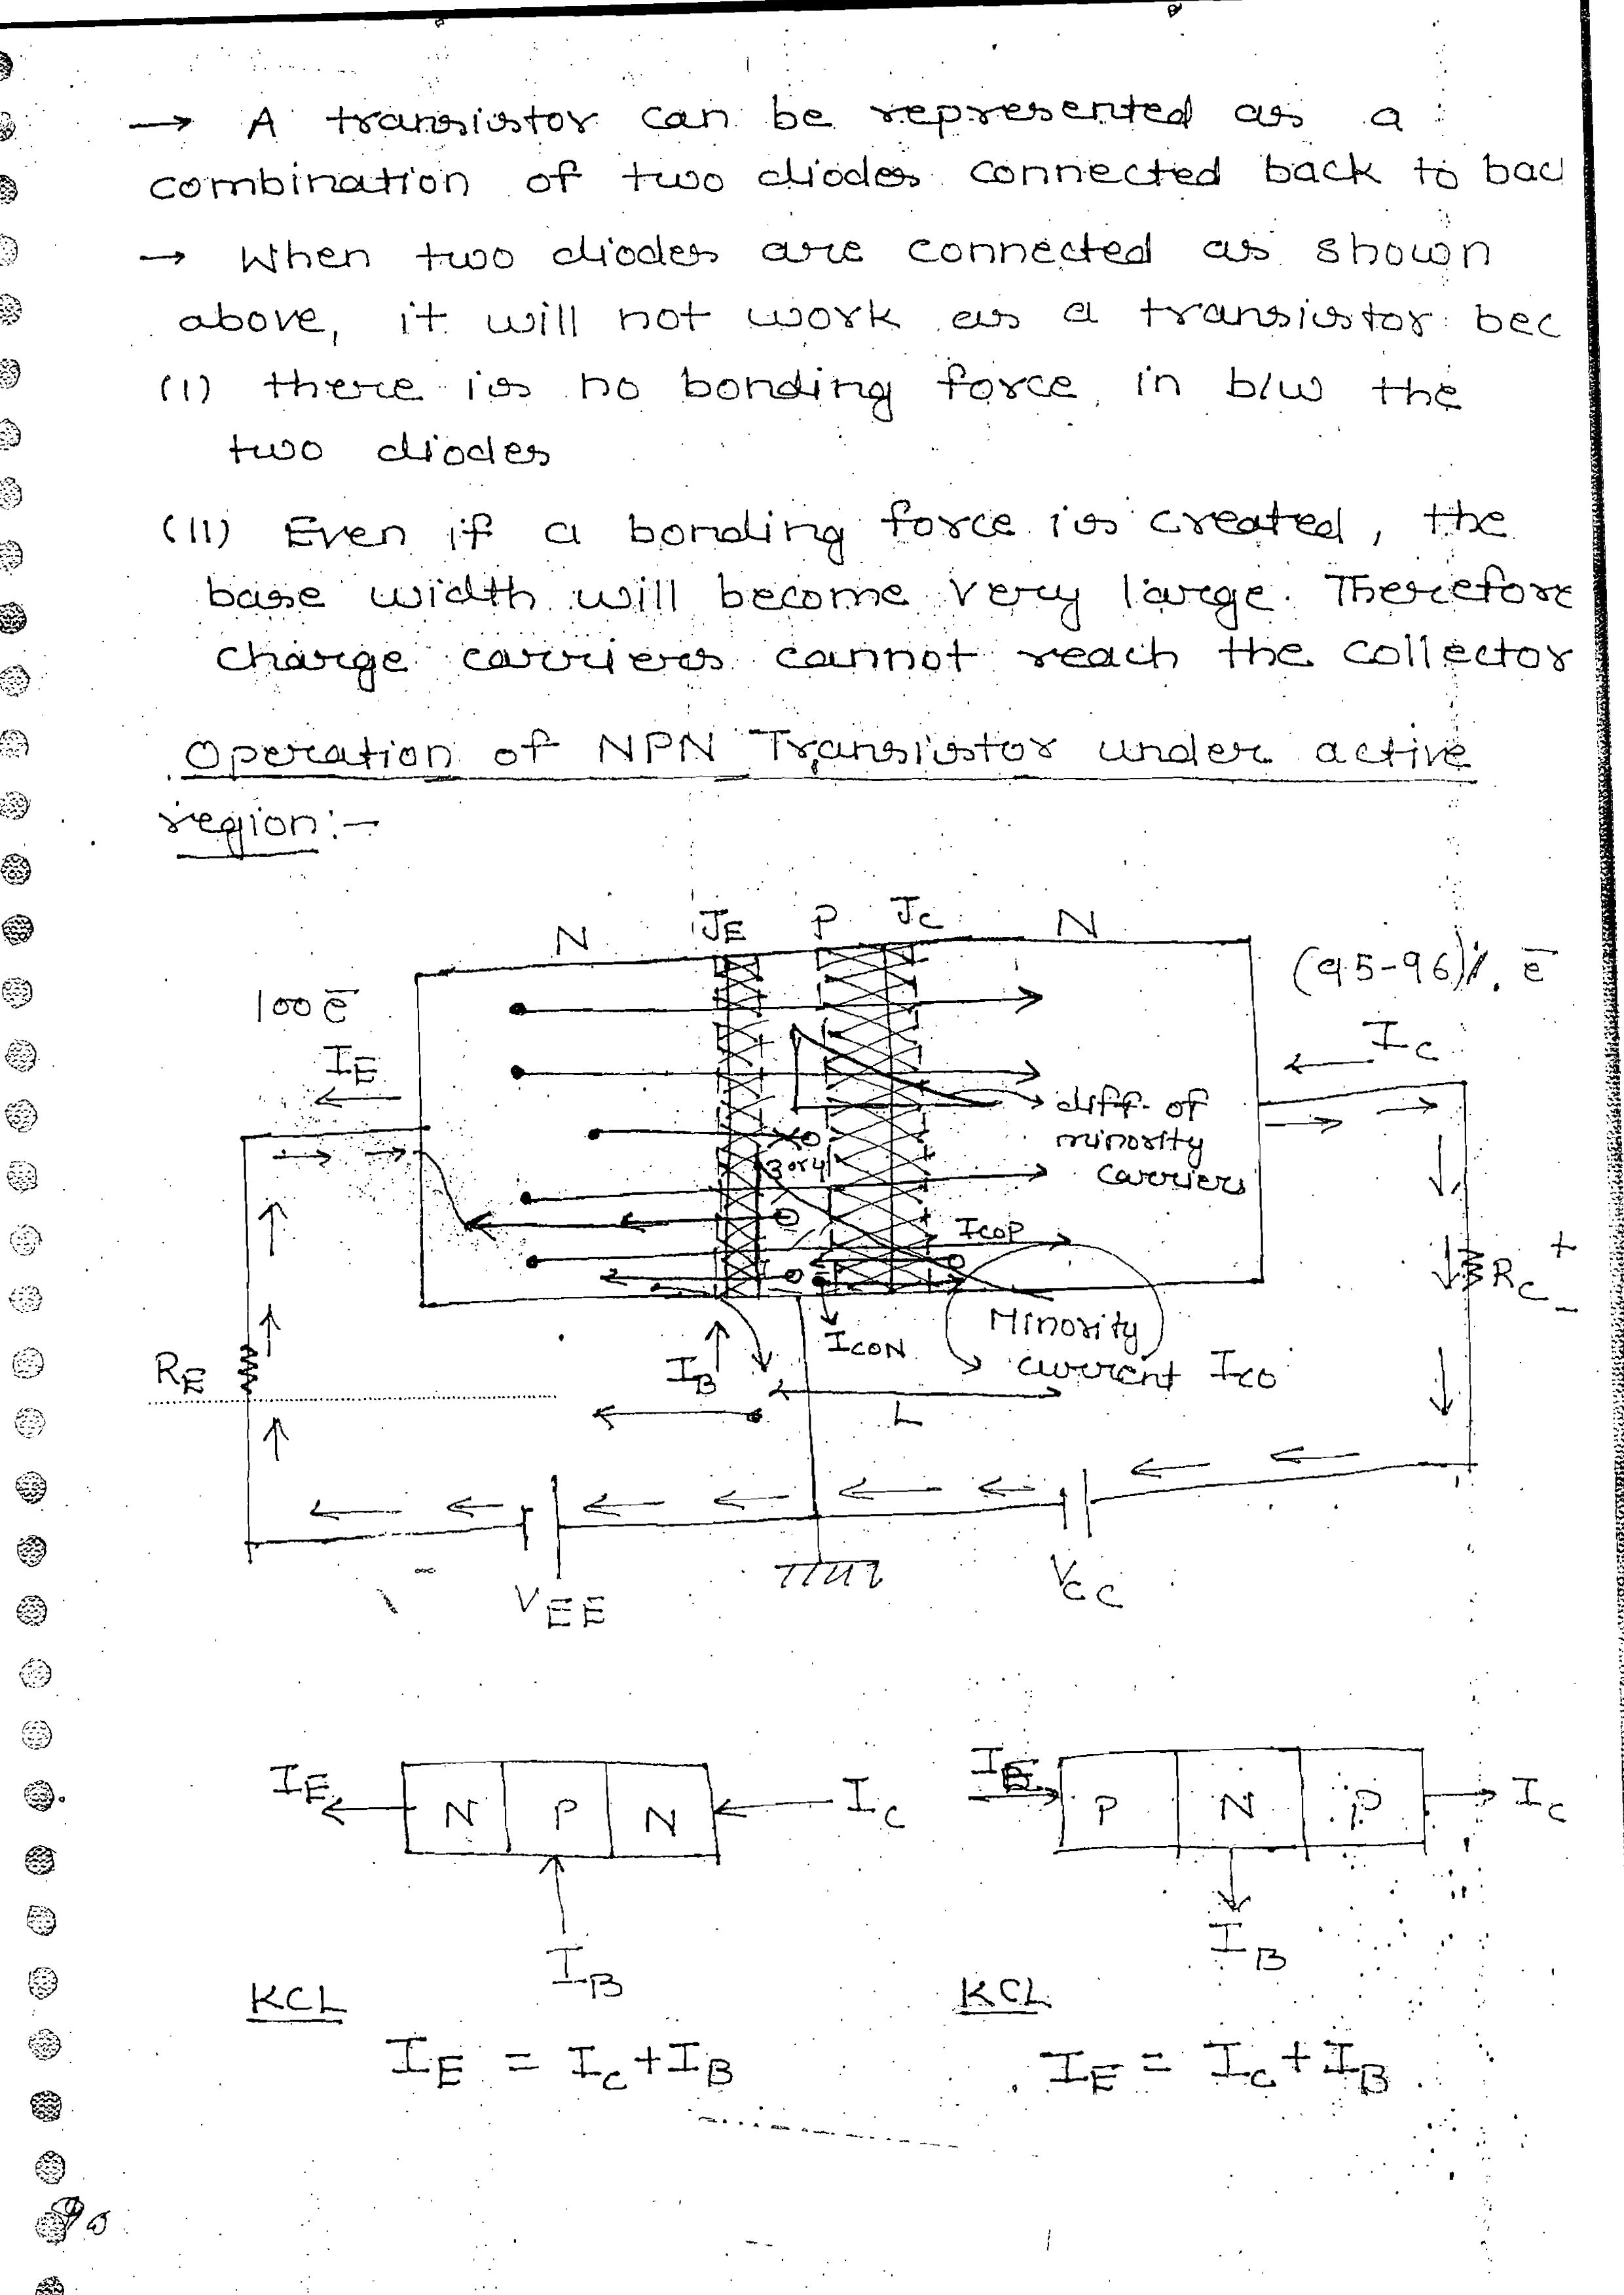 → A transistor can be represented as a
combination of two diodes connected back to bac
→ When two diodes are connected as shown
above, it will not work as a transistor bec
(I) there is no bonding force in b/w the
two diodes
(II) Even if a bonding force is created, the
base width will become very large. Therefore
charge carriers cannot reach the collector
Operation of NPN Transistor under active
region:-
N JE P JC N
100 e̅
(95-96)% e̅
IE
IC
diff. of
minority
carriers
3 or 4
ICOP
RC + -
ICON
Minority
current ICO
IB
RE
L
VEE
VCC
IE N P N IC
IE P N P IC
IB
IB
KCL
KCL
IE = IC + IB
IE = IC + IB